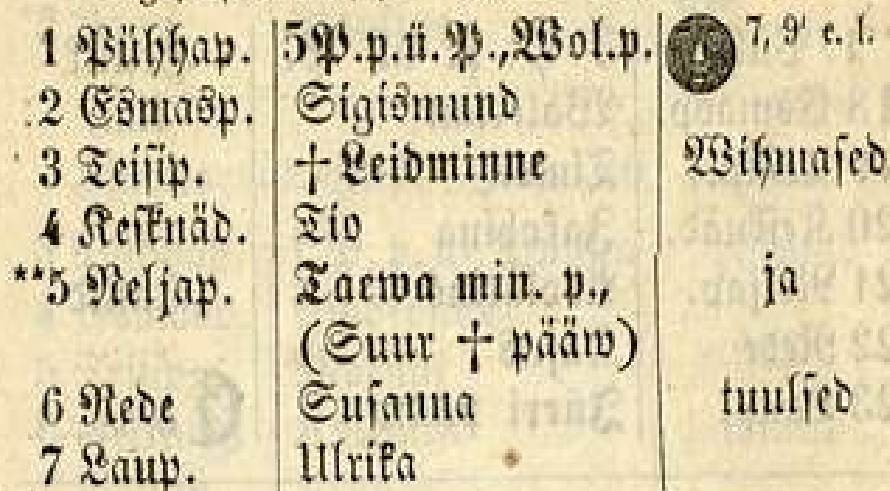 1 Pühhap. 5 P. p. ü. P., Wol. p. 7, 9' e. l.
2 Esmasp. Sigismund
3 Teisip. † Leidminne Wihmased
4 Kesknäd. Tio
**5 Neljap. Taewa min. p., ja
(Suur † pääw)
6 Rede Susanna tuulsed
7 Laup. Ulrika